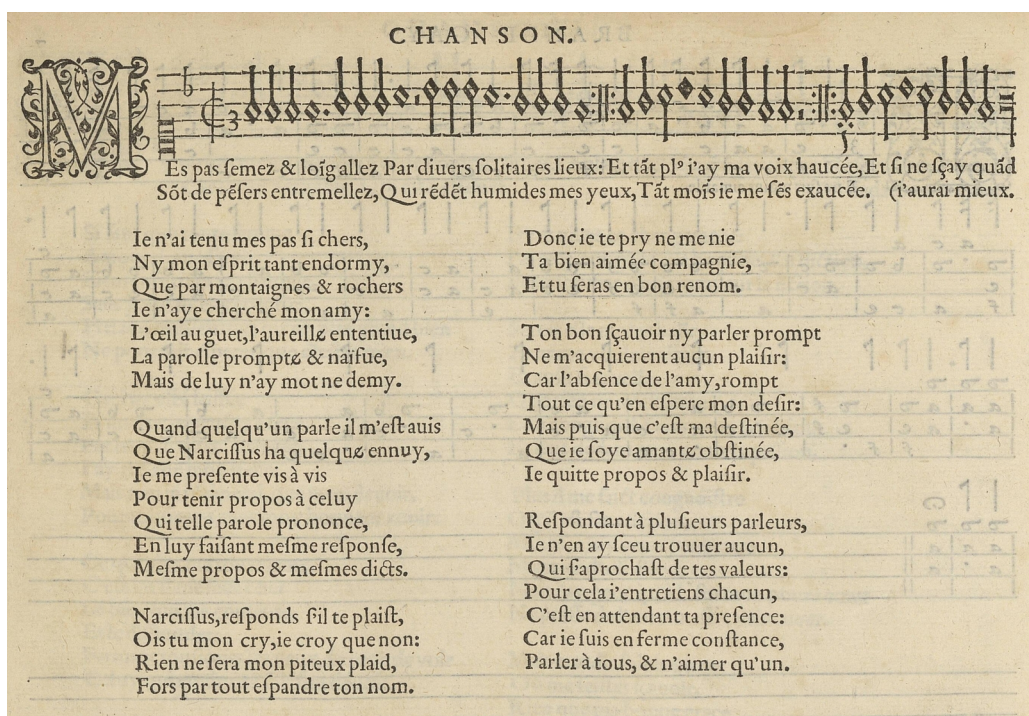 CHANSON.
MEs pas ſemez & loĩg allez Par diuers ſolitaires lieux: Et tãt plꝰ i'ay ma voix haucée, Et ſi ne ſçay quãd
Sõt de pẽſers entremellez, Qui rẽdẽt humides mes yeux, Tãt moĩs ie me ſẽs exaucée. (i'aurai mieux.
Ie n'ai tenu mes pas ſi chers,
Ny mon eſprit tant endormy,
Que par montaignes & rochers
Ie n'aye cherché mon amy:
L'œil au guet, l'aureille ententiue,
La parolle prompte & naïfue,
Mais de luy n'ay mot ne demy.
Quand quelqu'un parle il m'eſt auis
Que Narciſſus ha quelque ennuy,
Ie me preſente vis à vis
Pour tenir propos à celuy
Qui telle parole prononce,
En luy faiſant meſme reſponſe,
Meſme propos & meſmes dicts.
Narciſſus, reſponds ſ'il te plaiſt,
Ois tu mon cry, ie croy que non:
Rien ne ſera mon piteux plaid,
Fors par tout eſpandre ton nom.
Donc ie te pry ne me nie
Ta bien aimée compagnie,
Et tu ſeras en bon renom.
Ton bon ſçauoir ny parler prompt
Ne m'acquierent aucun plaiſir:
Car l'abſence de l'amy, rompt
Tout ce qu'en eſpere mon deſir:
Mais puis que c'eſt ma deſtinée,
Que ie ſoye amante obſtinée,
Ie quitte propos & plaiſir.
Reſpondant à pluſieurs parleurs,
Ie n'en ay ſceu trouuer aucun,
Qui ſ'aprochaſt de tes valeurs:
Pour cela i'entretiens chacun,
C'eſt en attendant ta preſence:
Car ie ſuis en ferme conſtance,
Parler à tous, & n'aimer qu'un.